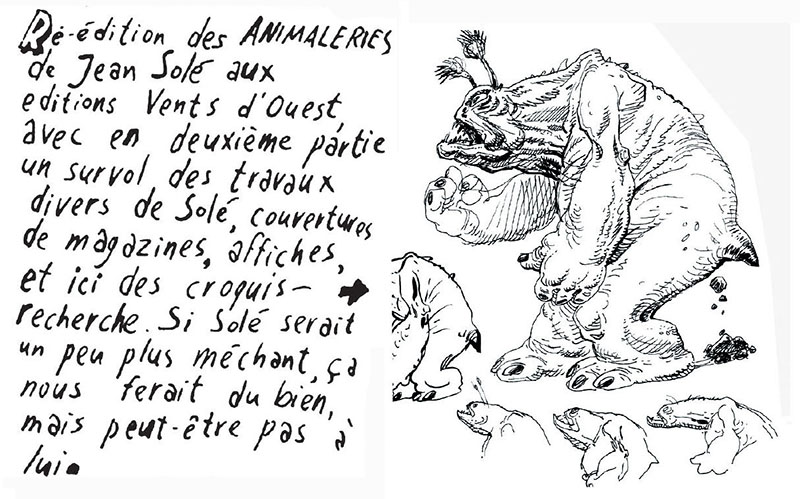 Ré-édition des ANIMALERIES
de Jean Solé aux
editions Vents d'Ouest,
avec en deuxième partie
un survol des travaux
divers de Solé, couvertures
de magazines, affiches,
et ici des croquis-
recherche. Si Solé serait
un peu plus méchant, ça
nous ferait du bien,
mais peut-être pas à
lui.